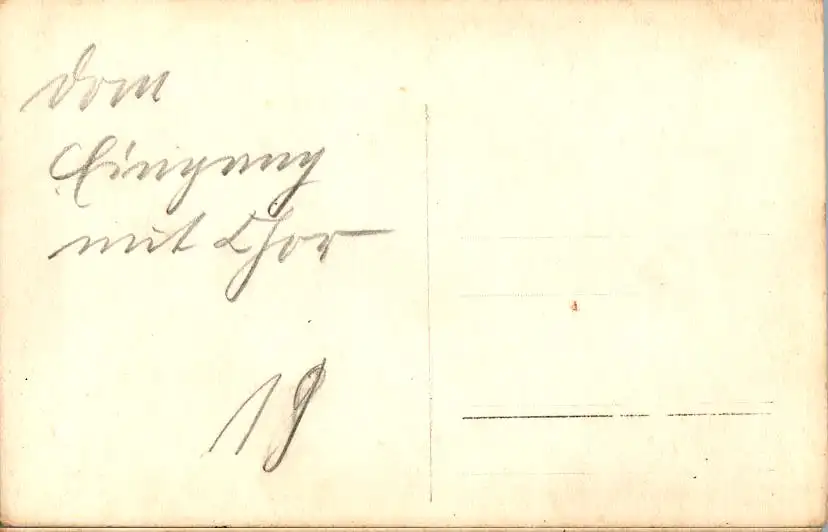 Dom
Eingang
mit Chor
19